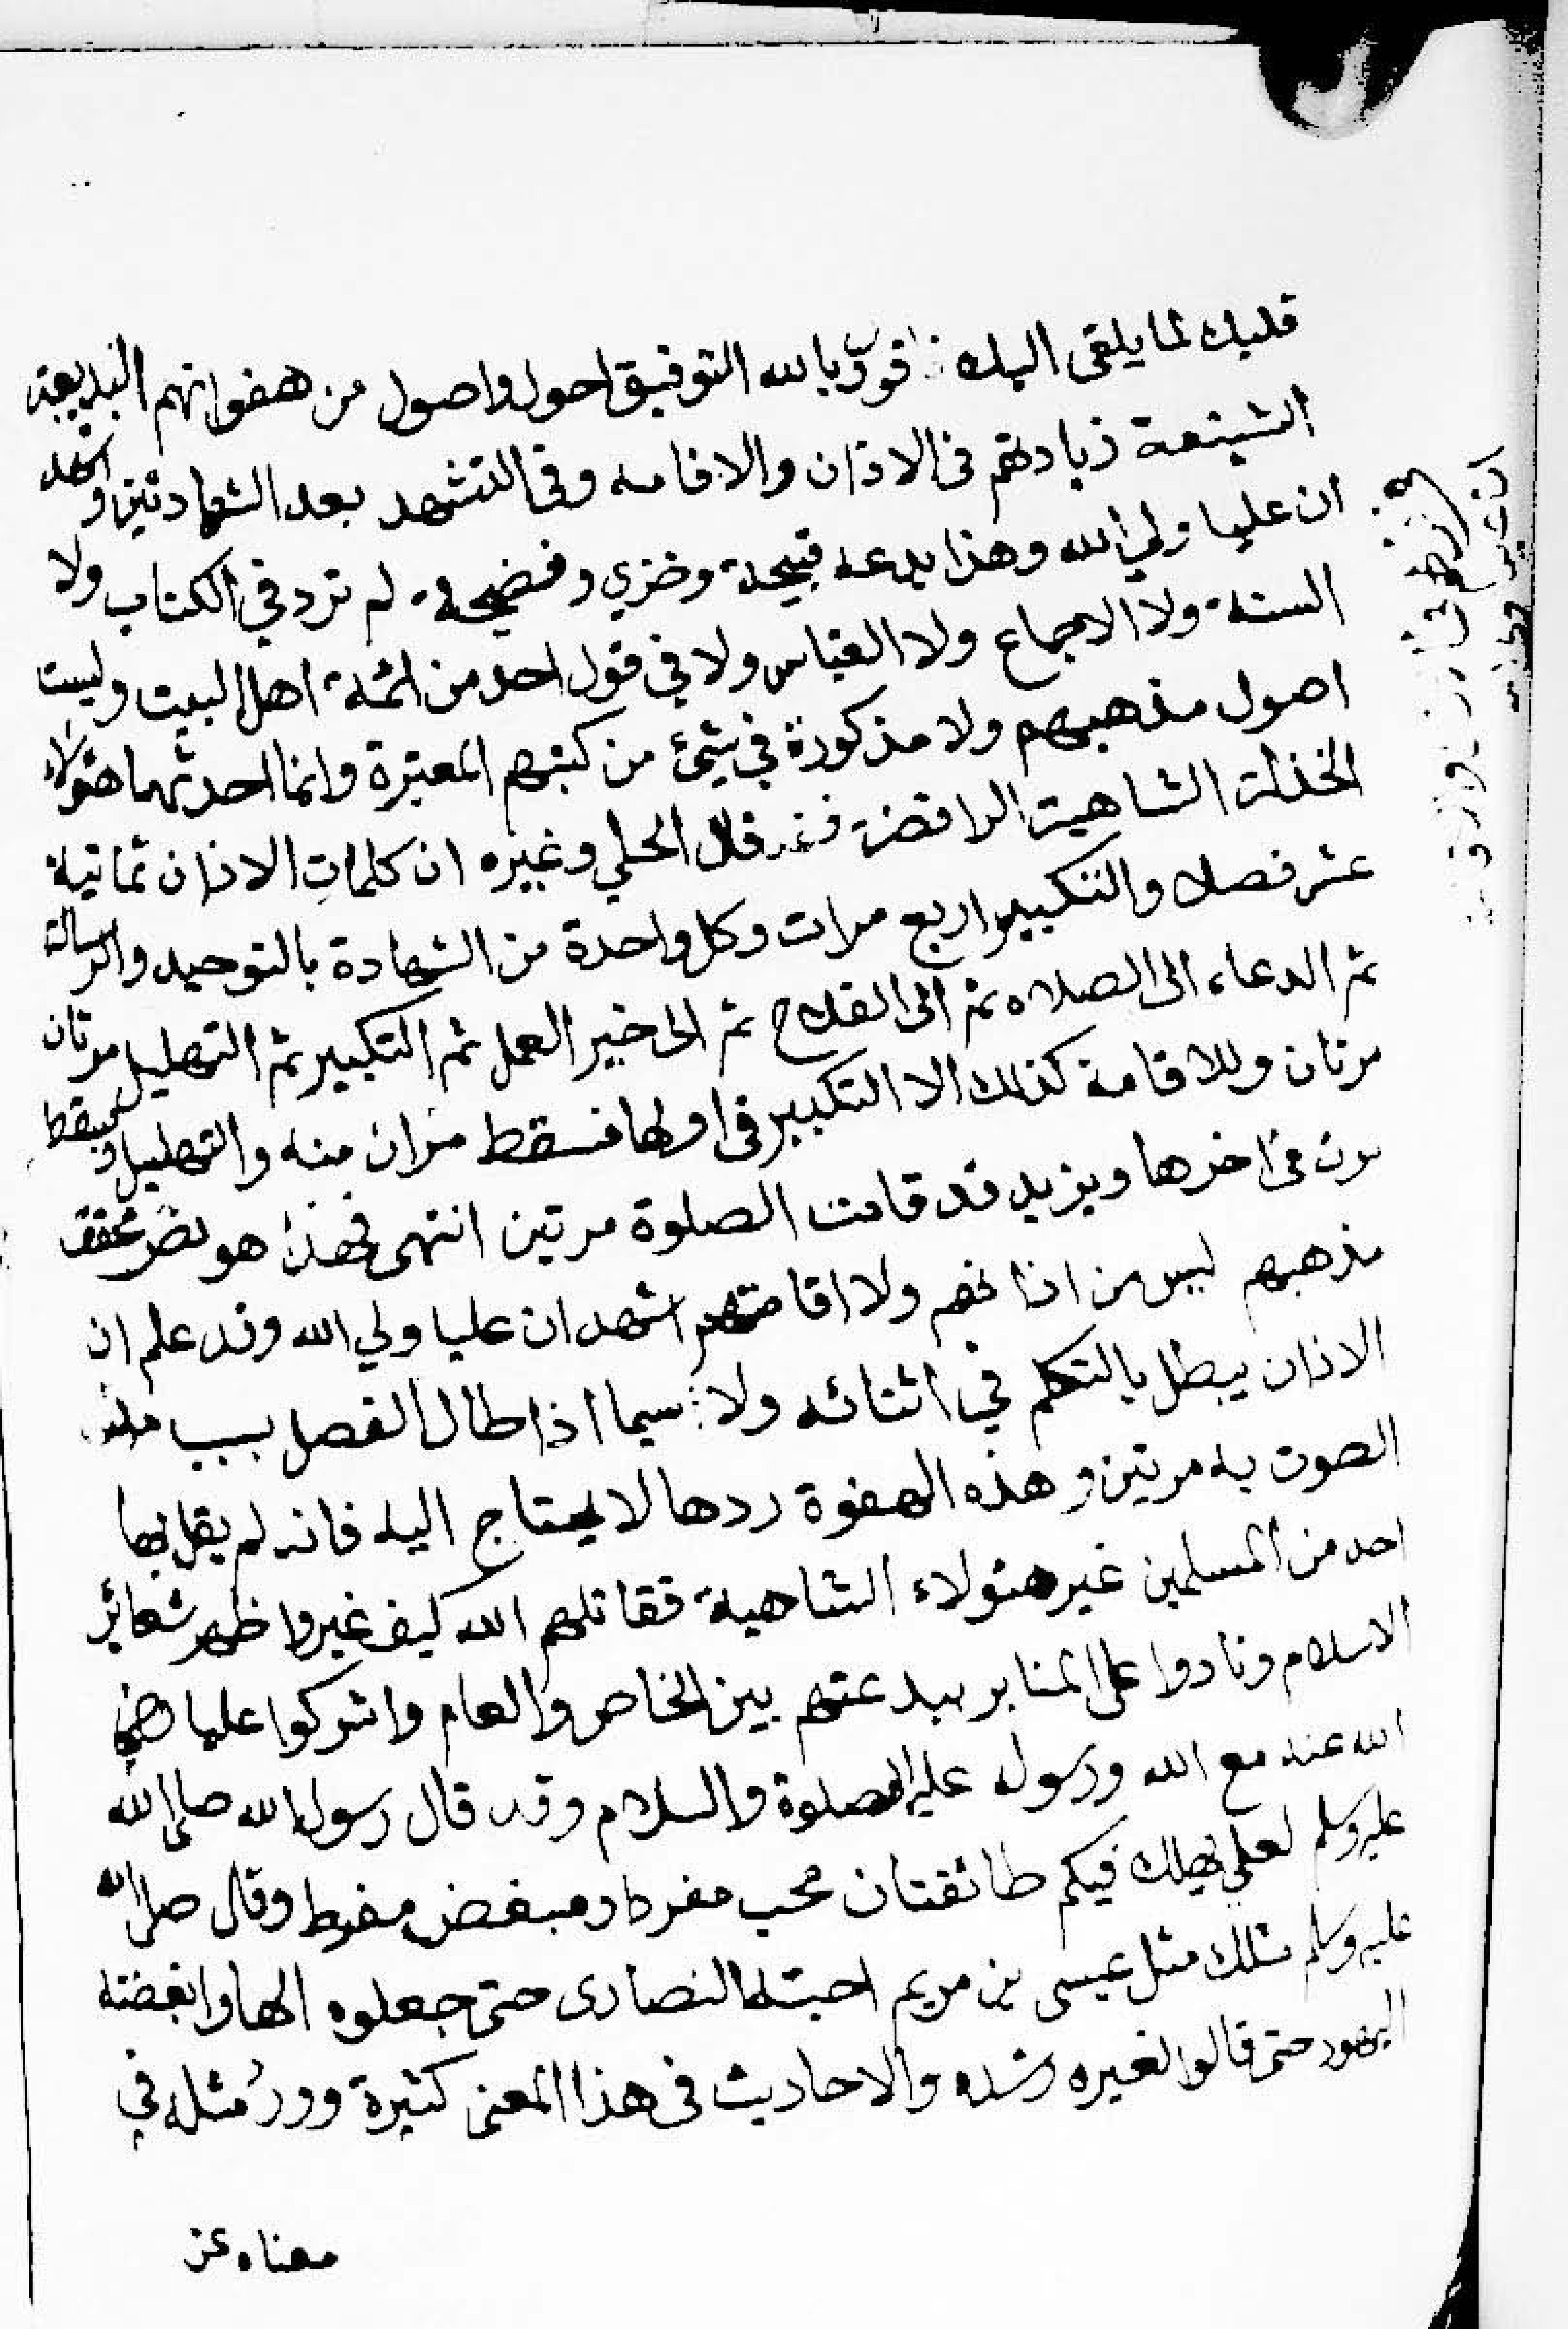 قلبك لما يلقى اليك فاقول وبالله التوفيق احول واصول من هفواتهم البديعة
الشنيعة زيادتهم فى الاذان والاقامه وفى التشهد بعد الشهادتين واشهد
ان عليا ولي الله وهذا بدعه قبيحة وخزي وفضيحة لم ترد في الكتاب ولا
السنة ولا الاجماع ولا القياس ولا في قول احد من ائمة اهل البيت وليست
اصول مذهبهم ولا مذكورة في شيئ من كتبهم المعتبرة وانما احدثها هؤلاء
الخذلة الشاهية الرافضة فقد قال الحلي وغيره ان كلمات الاذان ثمانية
عشر فصلا والتكبير اربع مرات وكل واحدة من الشهادة بالتوحيد والرسالة
ثم الدعاء الى الصلاه ثم الى الفلاح ثم الى خير العمل ثم التكبير ثم التهليل مرتان
مرتان وللاقامة كذلك الا التكبير فى اولها فسقط مرتان منه والتهليل ويسقط
مرة فى اخرها ويزيد قد قامت الصلوة مرتين انتهى فهذا هو نص محقق
مذهبهم ليس من اذانهم ولا اقامتهم اشهد ان عليا ولي الله وقد علم ان
الاذان يبطل بالتكلم في اثنائه ولا سيما اذا طال الفصل بسبب
الصوت به مرتين وهذه الهفوة ردها لا يحتاج اليه فانه لم يقل بها
احد من المسلمين غير هئولاء الشاهية فقاتلهم الله كيف غيروا اظهر شعائر
الاسلام ونادوا على المنابر ببدعتهم بين الخاص والعام واشركوا عليا رضي
الله عنه مع الله ورسوله عليه الصلوة والسلام وقد قال رسول الله صلى الله
عليه وسلم لعلي يهلك فيكم طائفتان محب مفرط ومبغض مفرط وقال صلى الله
عليه وسلم مثلك مثل عيسى بن مريم احبته النصارى حتى جعلوه الها وابغضته
اليهود حتى قالوا لغيره رشده والاحاديث فى هذا المعنى كثيرة وورد مثله في
معناه عن